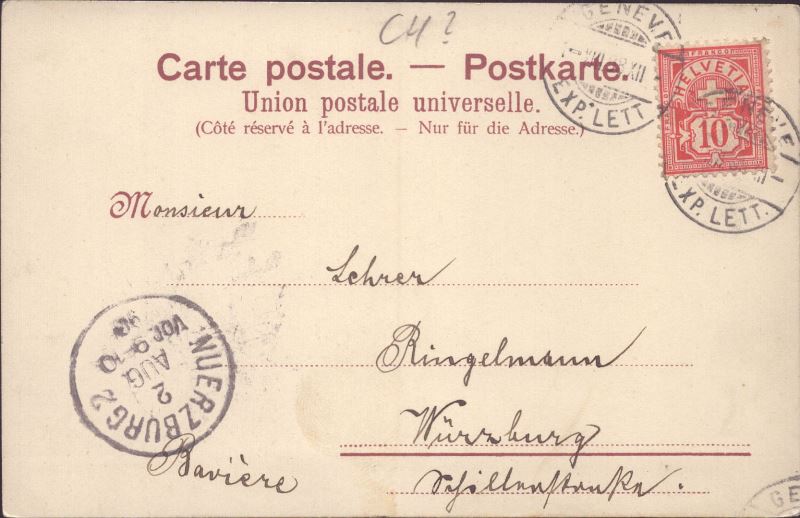 CH?
Carte postale. — Postkarte.
Union postale universelle.
(Côté réservé à l'adresse. – Nur für die Adresse.)
GENÈVE
EXP. LETT.
FRANCO
HELVETIA
10
EXP. LETT.
Monsieur
Lehrer
Ringelmann
Würzburg
Schillerstraße.
Bavière
WUERZBURG 2
2
AUG
9-10
VOR
GE